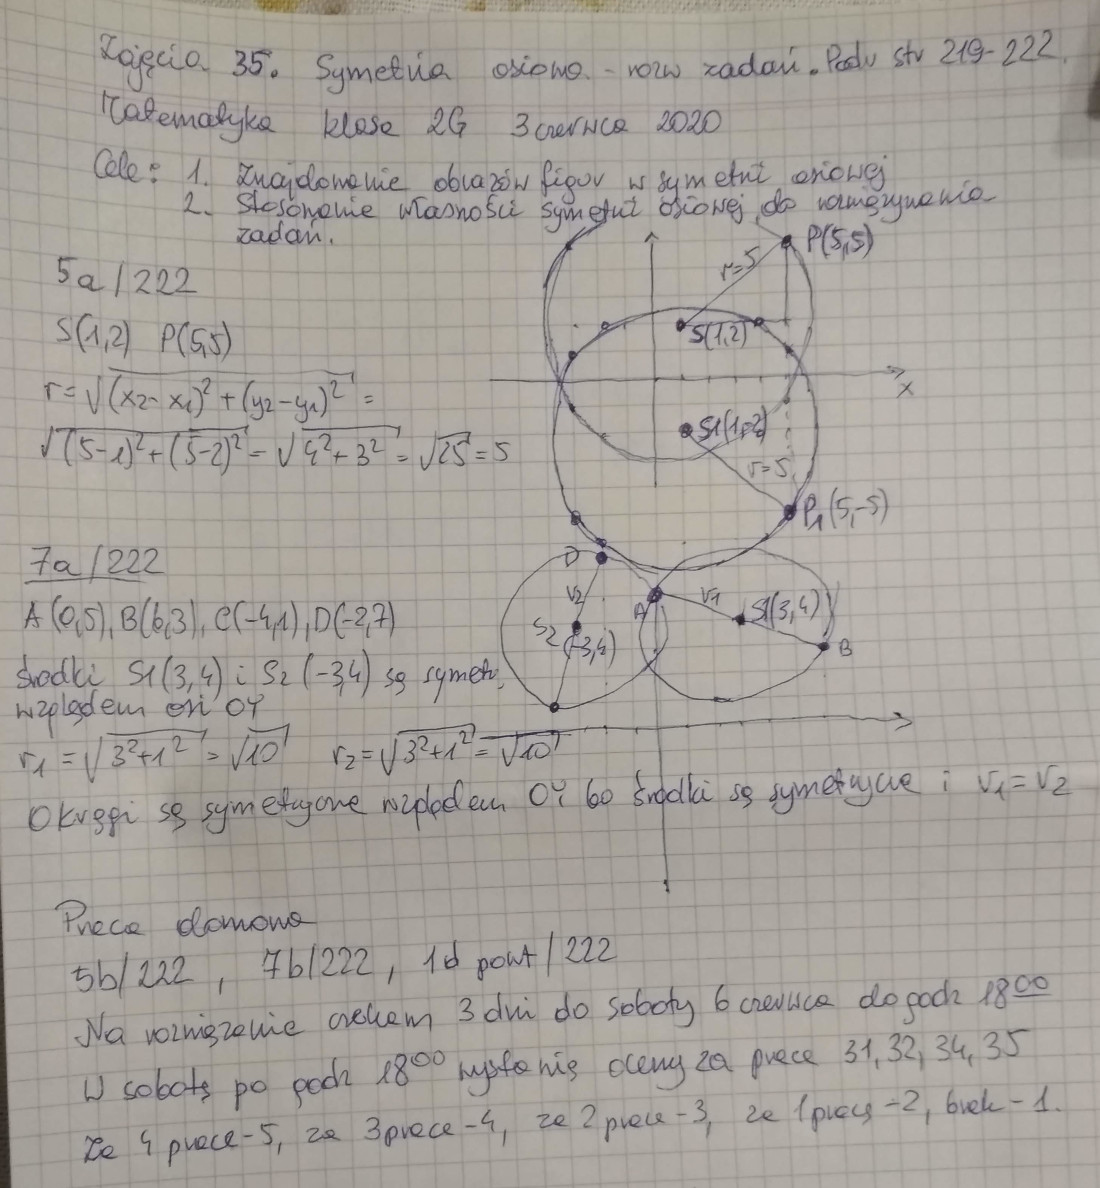 Zajęcia 35. Symetria osiowa - rozw zadań. Podr str 219-222.
Matematyka klasa 2G 3 czerwca 2020
Cele: 1. Znajdowanie obrazów figur w symetrii osiowej
2. Stosowanie własności symetrii osiowej do rozwiązywania
zadań.
5a/222
S(1,2) P(5,5)
r=√(x2-x1)²+(y2-y1)² =
√(5-1)²+(5-2)² = √4²+3² = √25 = 5
P(5,5)
r=5
S(1,2)
x
S1(1,-2)
r=5
P1(5,-5)
7a/222
A(0,5), B(6,3), C(-4,1), D(-2,7)
Środki S1(3,4) i S2(-3,4) są symetr.
względem osi OY
r1 = √3²+1² = √10 r2 = √3²+1² = √10
D
r2
S2(-3,4)
A
r1
S1(3,4)
B
Okręgi są symetryczne względem OY bo środki są symetryczne i r1=r2
Praca domowa
5b/222, 7b/222, 1d powt/222
Na rozwiązanie czekam 3 dni do soboty 6 czerwca do godz 18⁰⁰
W sobotę po godz 18⁰⁰ wystawię oceny za prace 31, 32, 34, 35
Za 4 prace-5, za 3 prace-4, za 2 prace-3, za 1 pracę-2, brak-1.